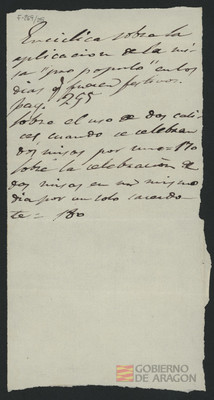 F-869/26
Enciclica sobre la
aplicacion de la mi-
sa "pro populo" en los
dias q fueren festivos.
pag. 295
Sobre el uso de dos cali-
ces cuando se celebran
dos misas por uno = 170
Sobre la celebracion de
dos misas en un mismo
dia por un solo sacerdo-
te =
GOBIERNO
DE ARAGON